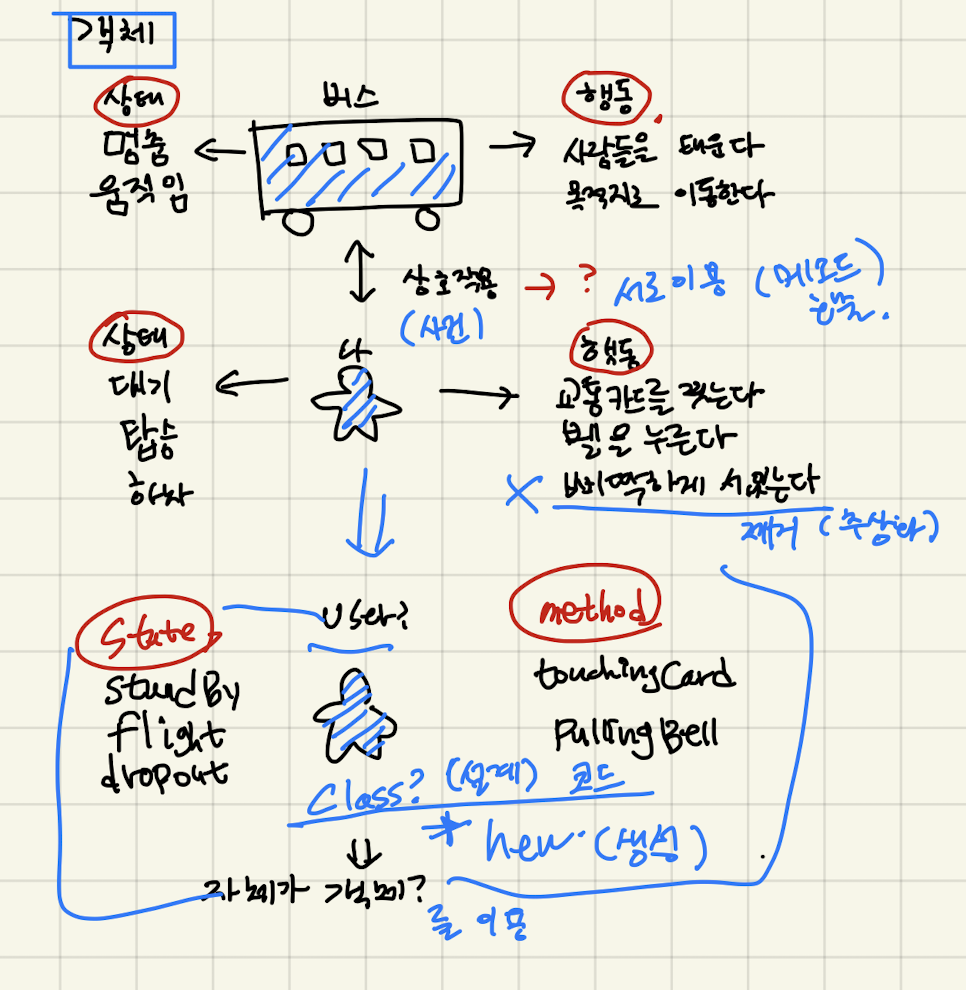 객체
상태
버스
행동
멈춤
움직임
사람들을 태운다
목적지로 이동한다
상호작용 → ? 서로 이용 (메서드)
(사건)
상태
나
행동
대기
탑승
하차
교통카드를 찍는다
벨을 누른다
X 삐딱하게 서있는다
제거 (추상화)
State
User?
method
standBy
flight
dropout
touchingCard
PullingBell
Class? (설계) 코드
* new (생성)
자체가 객체?
를 이룸